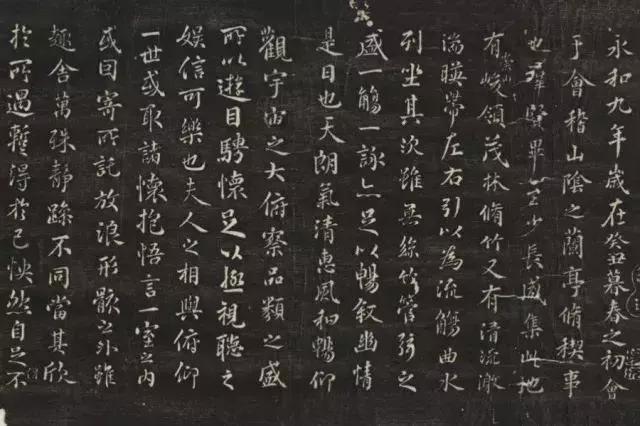 永和九年歲在癸丑暮春之初會
于會稽山陰之蘭亭脩稧事
也群賢畢至少長咸集此地
有崇山峻領茂林脩竹又有清流激
湍暎帶左右引以為流觴曲水
列坐其次雖無絲竹管弦之
盛一觴一詠亦足以暢叙幽情
是日也天朗氣清惠風和暢仰
觀宇宙之大俯察品類之盛
所以遊目騁懷足以極視聽之
娛信可樂也夫人之相與俯仰
一世或取諸懷抱悟言一室之內
或因寄所託放浪形骸之外雖
趣舍萬殊靜躁不同當其欣
於所遇暫得於己怏然自足不